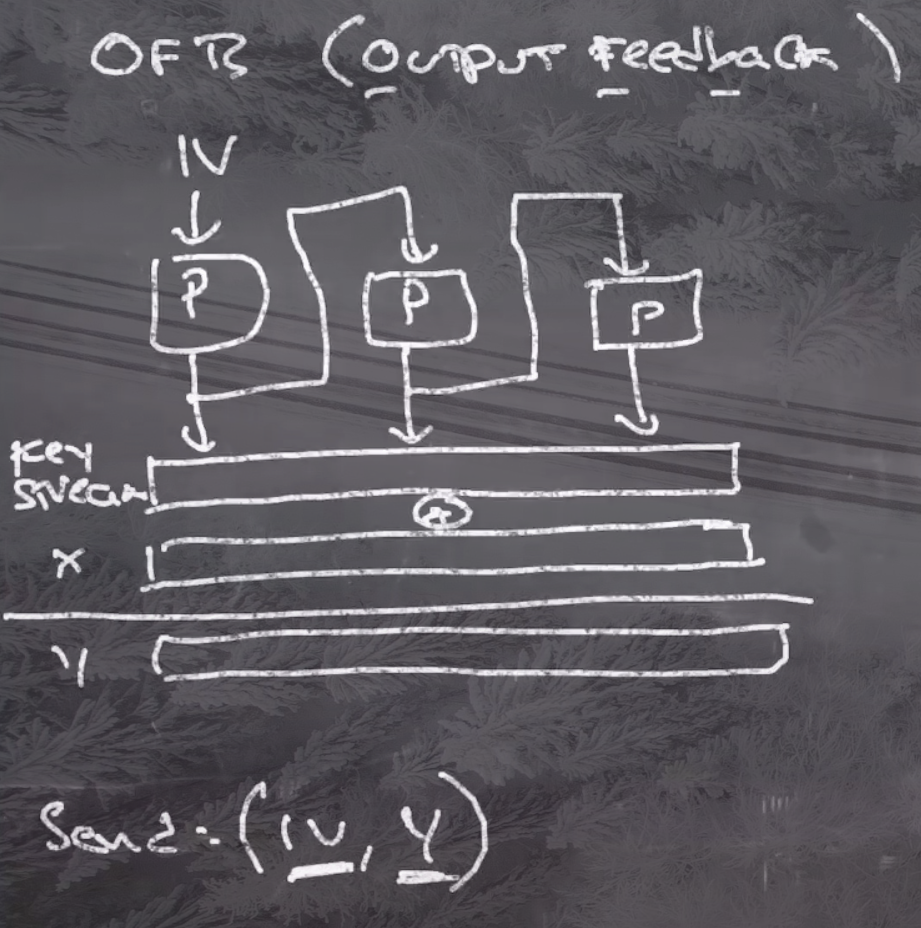 OFB (Output Feedback)
IV
P P P
Key
stream
⊕
X
Y
Send: (IV, Y)